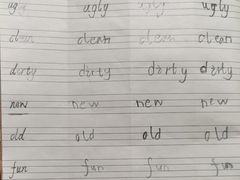 ugly ugly ugly
clean clean clean clean
dirty dirty dirty dirty
new new new new
old old old old
fun fun fun fun